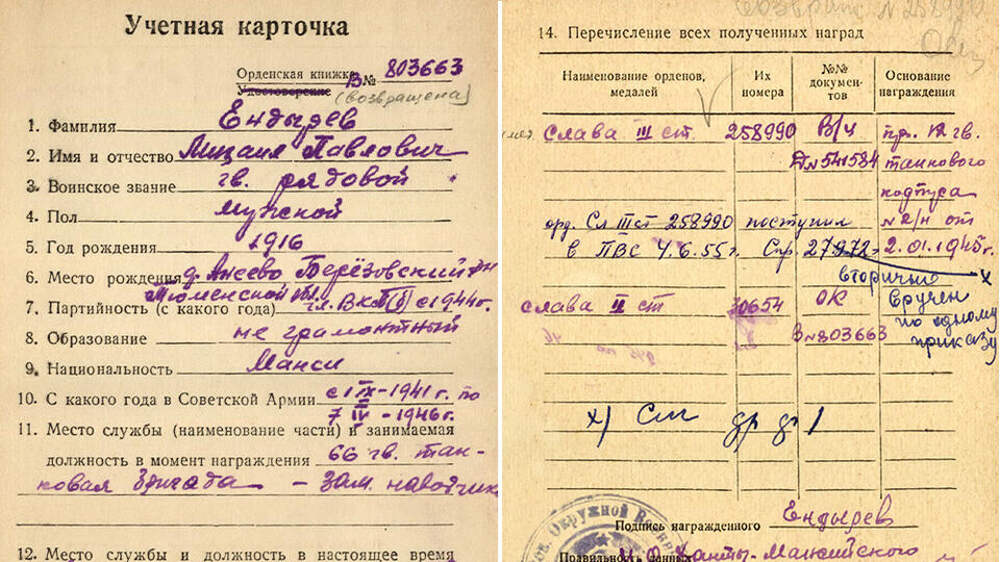 Учетная карточка
Орденская книжка В№ 803663
Удостоверение (возвращена)
1. Фамилия Ендырев
2. Имя и отчество Михаил Павлович
3. Воинское звание гв. рядовой
4. Пол мужской
5. Год рождения 1916
6. Место рождения д. Анеево Берёзовский р-н
Тюменской обл.
7. Партийность (с какого года) чл. ВКП(б) с 1944г.
8. Образование не грамотный
9. Национальность Манси
10. С какого года в Советской Армии с 1 IX-1941 г. по
7 IV - 1946г.
11. Место службы (наименование части) и занимаемая
должность в момент награждения 66 гв. тан-
ковая бригада - зам. наводчик
12. Место службы и должность в настоящее время
Возврат N 258990
14. Перечисление всех полученных наград
Наименование орденов, медалей
Их номера
№№ документов
Основание награждения
Слава III ст. 258990 В/ч пр. 12 гв.
№541584 танкового
корпуса
орд. Сл IIIст 258990 поступил №2/н от
в ПВС 4.6.55г. Спр. 27972 2.01.1945г.
вторично х
Слава II ст 30654 ОК вручен
В№803663 по одному
приказу
х) См др д
Подпись награжденного Ендырев
Окружной
Правильность данных Ханты-Мансийского